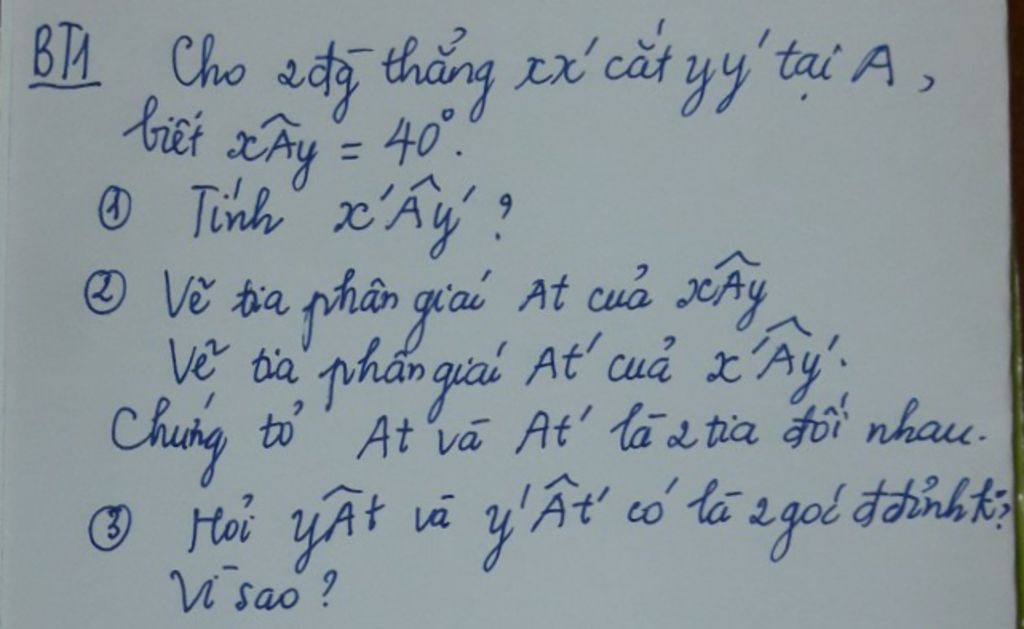 BT1 Cho 2 đg̅ thẳng xx' cắt yy' tại A,
biết xÂy = 40°.
① Tính x'Ây' ?
② Vẽ tia phân giác At của xÂy
Vẽ tia phân giác At' của x'Ây'.
Chứng tỏ At và At' là 2 tia đối nhau.
③ Hỏi yÂt và y'Ât' có là 2 góc đ đỉnh k?
Vì sao ?